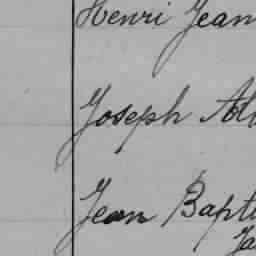 Henri Jean
Joseph
Jean Bapt